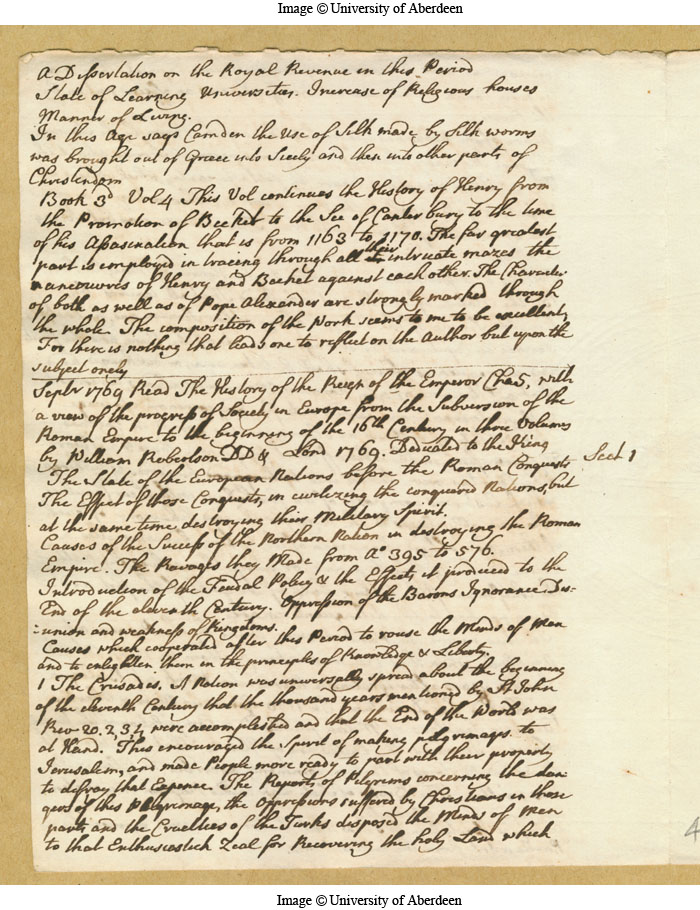 Image © University of Aberdeen
A Dissertation on the Royal Revenue in this Period
State of Learning Universities. Increase of Religious houses
Manner of Living.
In this Age says Camden the Use of Silk made by Silk worms
was brought out of Greece into Sicely and then into other parts of
Christendom
Book 3d Vol 4 This Vol continues the History of Henry from
the Promotion of Becket to the See of Canterbury to the time
of his Assassination that is from 1163 to 1170. The far greatest
part is employed in tracing through all their intricate mazes the
maneuvres of Henry and Becket against each other. The Character
of both as well as of Pope Alexander are strongly marked through
the whole. The composition of the Work seems to me to be excellent,
For there is nothing that leads one to reflect on the Author but upon the
subject onely
Septr 1769 Read The History of the Reign of the Emperor Cha 5, with
a view of the progress of Society in Europe from the Subversion of the
Roman Empire to the beginning of the 16th Century in three Volumes
by William Robertson DD & Lond 1769. Dedicated to the King
The State of the European Nations before the Roman Conquests Sect 1
The Effect of those Conquests, in civilizing the conquered Nations, but
at the same time destroying their Military Spirit.
Causes of the Success of the Northern Nation in destroying the Roman
Empire. The Ravages they Made from Ao 395 to 576.
Introduction of the Feudal Policy & the Effects it produced to the
End of the eleventh Century. Oppression of the Barons Ignorance. Dis=
=union and weakness of Kingdoms.
Causes which cooperated after this Period to rouse the Minds of Men
and to enlighten them in the principles of Knowledge & Liberty.
1 The Crusades. A Notion was universally spread about the beginning
of the eleventh Century that the thousand years mentioned by St John
Rev 20. 2, 3, 4 were accomplished and that the End of the World was
at Hand. This encouraged the Spirit of making pilgrimages to
Jerusalem, and made People more ready to part with their property
to defray that Expence. The Reports of Pilgrims concerning the dan
gers of this Pilgrimage, the Oppressions suffered by Christians in those
parts and the Cruelties of the Turks disposed the Minds of Men
to that Enthusiastick Zeal for Recovering the holy Land which
Image © University of Aberdeen